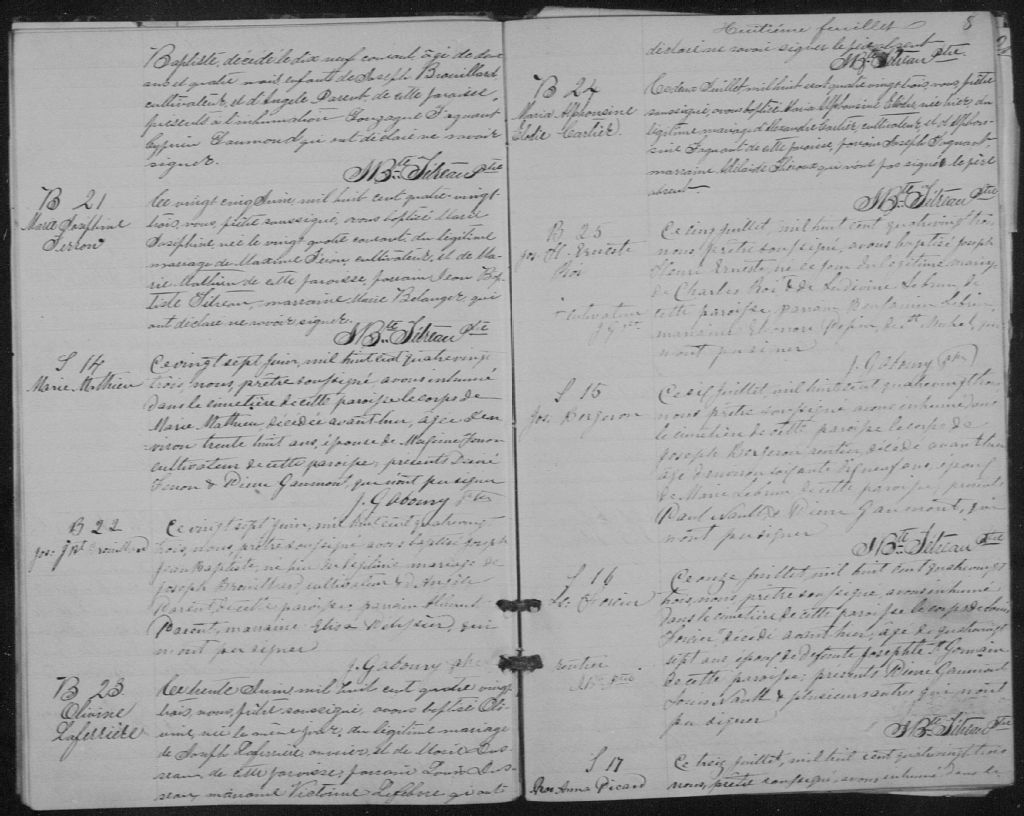 Baptiste, décédé le dix neuf courant, âgé de
ans et quatre mois enfant de Joseph Brouillard
cultivateur, et d'Angèle Parent, de cette paroisse,
présents à l'inhumation Gonzague Fagnant
Cyprien Gaumond qui ont déclaré ne savoir
signer.
J Bte Titreau Ptre
B 21
Maria Joséphine
Ferron
Ce vingt cinq Juin, mil huit cent quatre vingt
trois, nous, prêtre soussigné, avons baptisé Marie
Joséphine, née le vingt quatre courant, du légitime
mariage de Maxime Feron, cultivateur, et de Ma-
rie Mathieu de cette paroisse, parrain Jean Bap-
tiste Titreau, marraine Marie Belanger, qui
ont déclaré ne savoir signer.
J Bte Titreau Ptre
S 14
Marie Mathieu
Ce vingt sept juin, mil huit cent quatrevingt
trois, nous, prêtre soussigné, avons inhumé
dans le cimetière de cette paroisse le corps de
Marie Mathieu, décédée avant hier, âgée d'en
viron trente huit ans, épouse de Maxime Feron
cultivateur de cette paroisse; présents Désiré
Feron & Pierre Gaumont, qui n'ont pu signer
J. Gaboury ptre
B 22
Jos. J. Bte Brouillard
Ce vingt sept juin, mil huit cent quatrevingt
trois, nous, prêtre soussigné avons baptisé Joseph
Jean Baptiste, né hier du légitime mariage de
Joseph Brouillard, cultivateur & d'Angèle
Parent, de cette paroisse; parrain
Parent, marraine Elise Pelissier, qui
n'ont pu signer
J. Gaboury ptre
B 23
Olivine
Laferrière
Ce trente Juin mil huit cent quatre vingt
trois, nous, prêtre soussigné, avons baptisé Oli-
vine, née le même jour, du légitime mariage
de Joseph Laferrière, ouvrier, et de Marie Dus-
seau, de cette paroisse, parrain Louis Dus-
seau, marraine Victorine Lefebvre qui ont
Huitième feuillet 8
déclaré ne savoir signer le père absent
J Bte Titreau Ptre
B 24
Maria Alphonsine
Elodie Cartier
Ce deux Juillet, mil huit cent quatre vingt trois, nous prêtre
soussigné, avons baptisé Maria Alphonsine Elodie, née hier, du
légitime mariage d'Alexandre Cartier, cultivateur, et d'Alphon-
sine Fagnant de cette paroisse, parrain Joseph Fagnant,
marraine Adelaide Heroux qui n'ont pas signé le père
absent
J Bte Titreau Ptre
B 25
Jos. H. Erneste
Roi
+ cultivateur
Ce cinq juillet, mil huit cent quatrevingt trois,
nous prêtre soussigné, avons baptisé Joseph
Henri Erneste, né ce jour du légitime mariage
de Charles Roi + & de Ludivine Lebrun, de
cette paroisse, parrain Benjamin Lebrun,
marraine Eléonore Pepin, de St. Michel, qui
n'ont pu signer
J. Gaboury ptre
S 15
Jos. Bergeron
Ce six juillet, mil huit cent quatrevingt trois
nous prêtre soussigné avons inhumé dans
le cimetière de cette paroisse le corps de
Joseph Bergeron rentier, décédé avant hier
âgé d'environ soixante dix neuf ans, époux
de Marie Lebrun de cette paroisse; présents
Paul Nault & Pierre Gaumont, qui
n'ont pu signer
J Bte Titreau Ptre
S 16
Ls. Forcier
rentier
Ce onze juillet, mil huit cent quatrevingt
trois, nous, prêtre soussigné, avons inhumé
dans le cimetière de cette paroisse le corps de Louis
Forcier décédé avant hier, âgé de quatrevingt
sept ans époux de défunte Josephte St. Germain
de cette paroisse; présents Pierre Gaumont
Louis Nault & plusieurs autres qui n'ont
pu signer
J Bte Titreau Ptre
S 17
Rose Anna Picard
Ce treize juillet, mil huit cent quatrevingt trois
nous, prêtre soussigné avons inhumé dans le